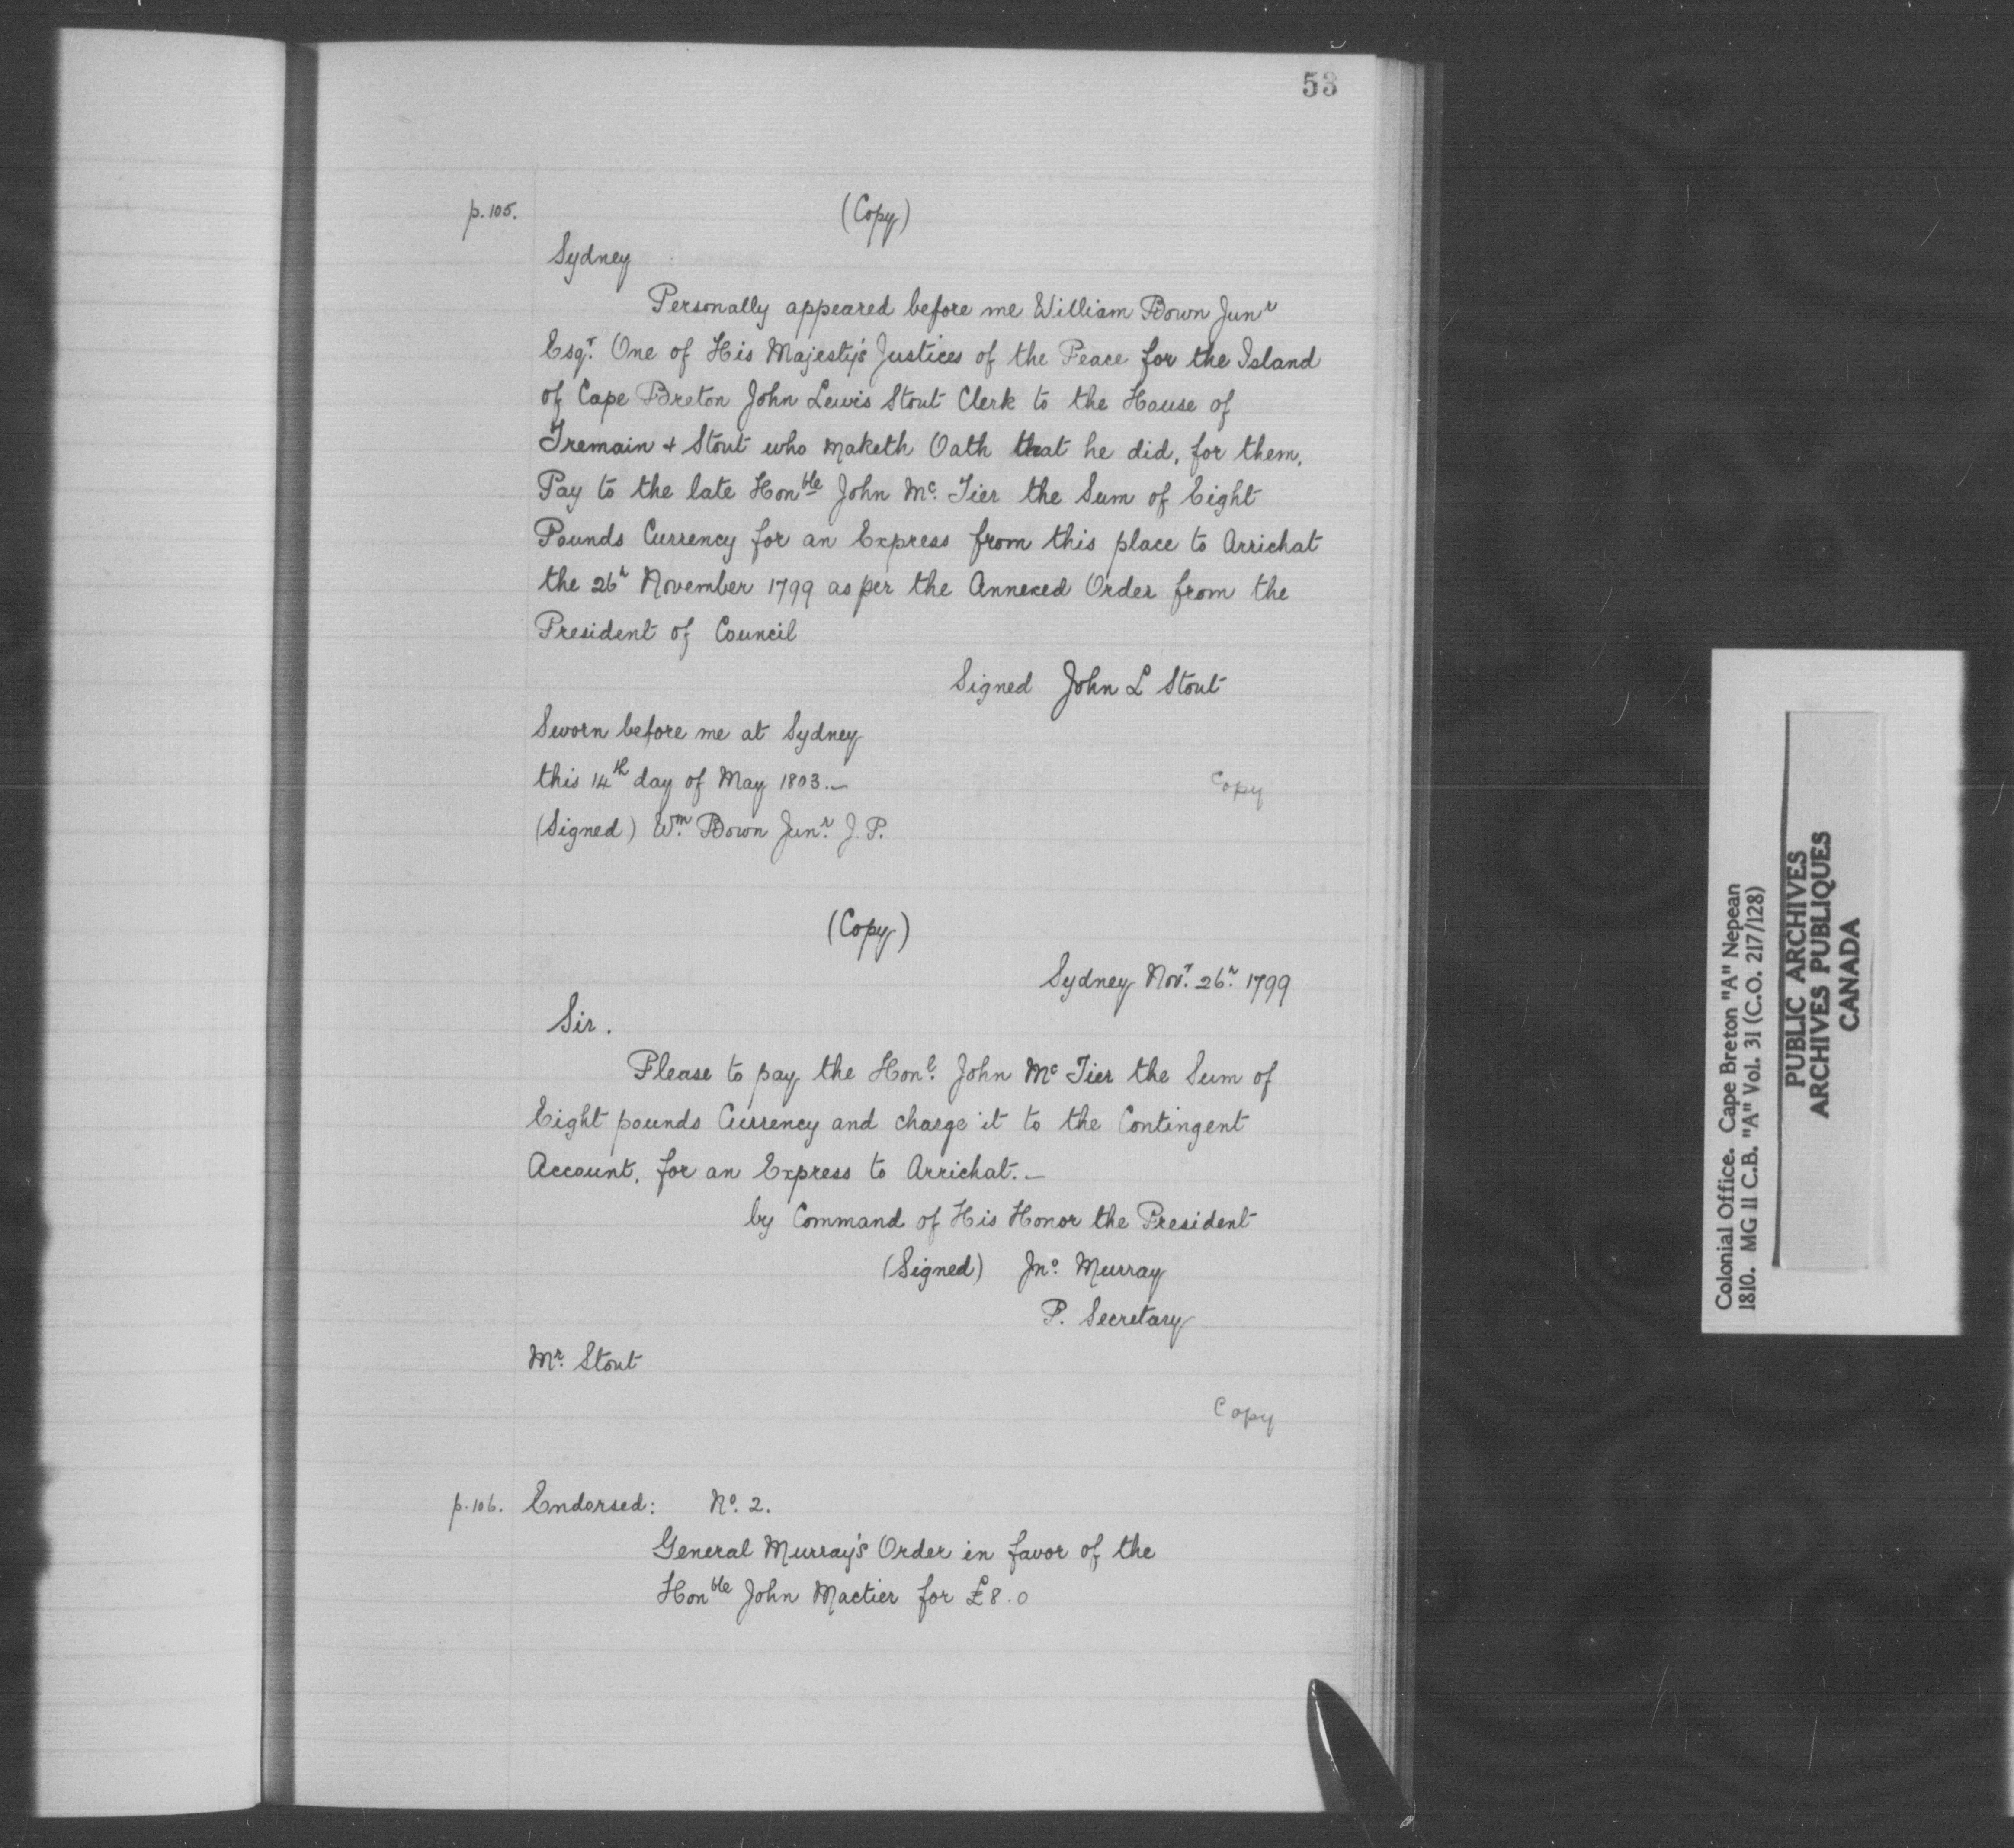 53
p.105.
(Copy)
Sydney
Personally appeared before me William Bown Junr
Esqr. One of His Majesty's Justices of the Peace for the Island
of Cape Breton John Lewis Stout Clerk to the House of
Tremain + Stout who maketh Oath that he did, for them,
Pay to the late Honble John Mc. Tier the Sum of Eight
Pounds Currency for an Express from this place to Arrichat
the 26r November 1799 as per the Annexed Order from the
President of Council
Signed John L Stout
Sworn before me at Sydney
this 14th day of May 1803.—
Copy
(Signed) Wm. Bown Junr. J. P.
(Copy)
Sydney Novr. 26r. 1799
Sir.
Please to pay the Honl. John Mc Tier the Sum of
Eight pounds Currency and charge it to the Contingent
Account, for an Express to Arrichat.—
by Command of His Honor the President
(Signed) Jno. Murray
P. Secretary
Mr. Stout
Copy
p.106. Endorsed: No. 2.
General Murray's Order in favor of the
Honble John Mactier for £8.0
Colonial Office. Cape Breton "A" Nepean
1810. MG 11 C.B. "A" Vol. 31 (C.O. 217/128)
PUBLIC ARCHIVES
ARCHIVES PUBLIQUES
CANADA